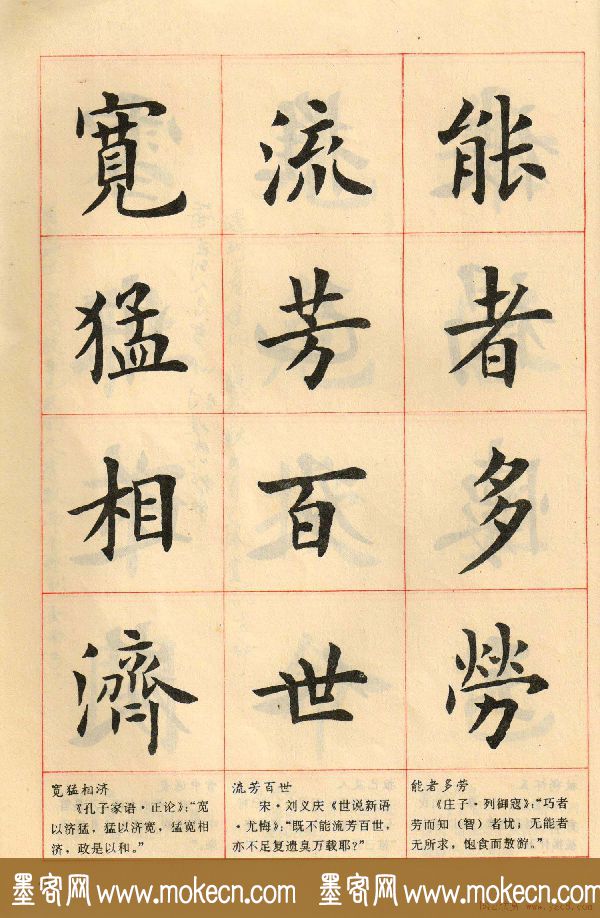 能者多勞
流芳百世
寬猛相濟
能者多劳
《庄子·列御寇》：“巧者
劳而知（智）者忧，无能者
无所求，饱食而敖游。”
流芳百世
宋·刘义庆《世说新语
·尤悔》：“既不能流芳百世，
亦不足复遗臭万载耶？”
宽猛相济
《孔子家语·正论》：“宽
以济猛，猛以济宽，宽猛相
济，政是以和。”
墨客网 www.mokecn.com 墨客网 www.mokecn.com